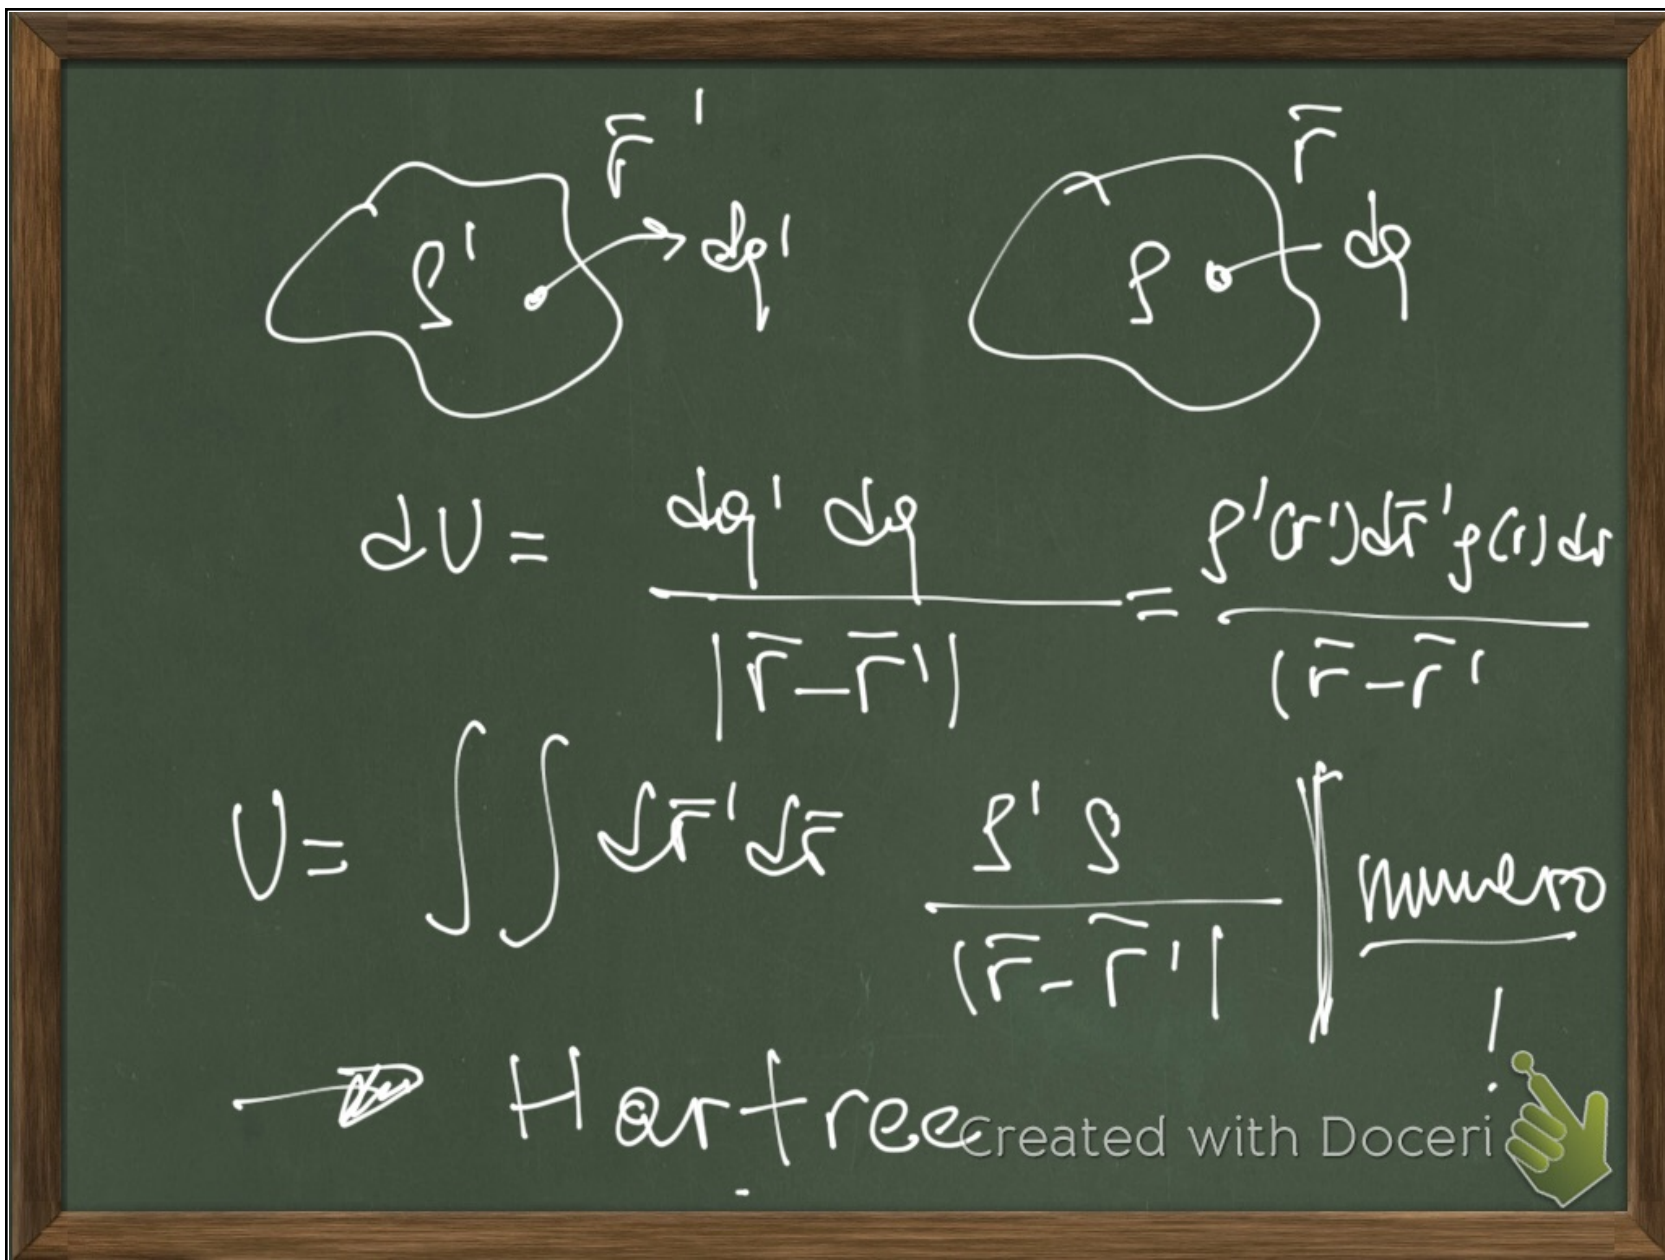 r̄' r̄
ρ' dq' ρ dq
dU = dq' dq / |r̄-r̄'| = ρ'(r')dr̄'ρ(r)dr / (r̄-r̄'
U= ∫∫ dr̄'dr̄ ρ'ρ / |r̄-r̄'| numero !
→ Hartree
Created with Doceri